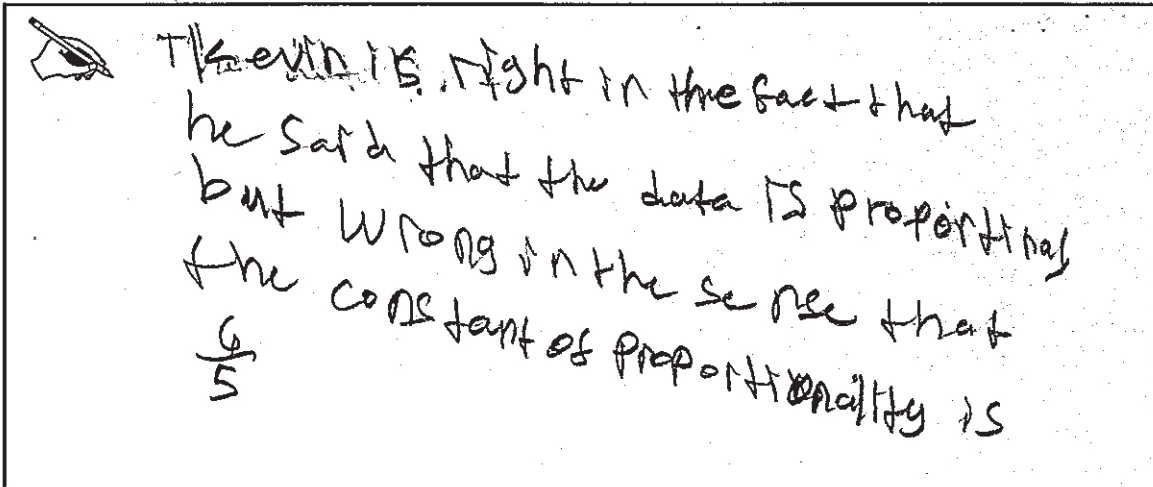 Kevin is right in the fact that
he said that the data is proportinal
but wrong in the sense that
the constant of proportionality is
6/5